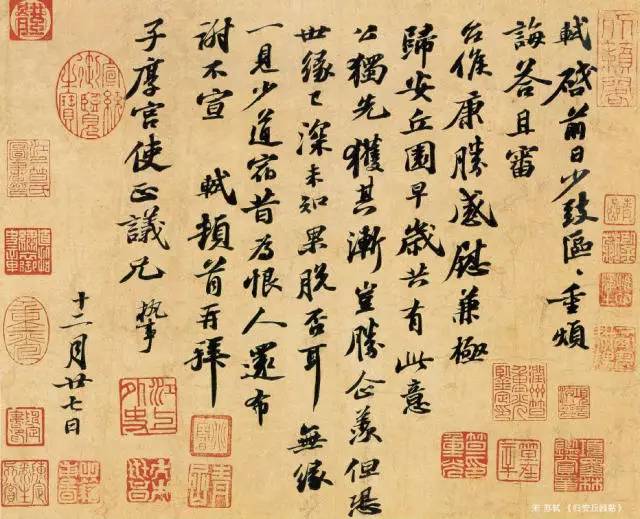 軾啓前日少致區〻重煩
誨荅且審
台候康勝感慰兼極
歸安丘園早歲共有此意
公獨先獲其漸豈勝企羨但恐
世緣已深未知果脫否耳無緣
一見少道宿昔為恨人還布
謝不宣 軾頓首再拜
子厚宮使正議兄 執事
十二月廿七日
宣統御覽之寶
江上外史
宋 苏轼 《归安丘园帖》